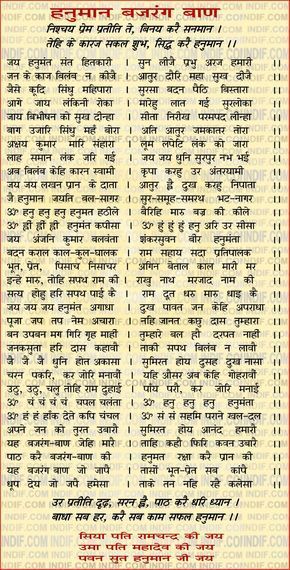 हनुमान बजरंग बाण
निश्चय प्रेम प्रतीति ते, बिनय करैं सनमान ।
तेहि के कारज सकल शुभ, सिद्ध करैं हनुमान ।।
जय हनुमंत संत हितकारी । सुन लीजै प्रभु अरज हमारी
जन के काज बिलंब न कीजै । आतुर दौरि महा सुख दीजै
जैसे कूदि सिंधु महिपारा । सुरसा बदन पैठि बिस्तारा
आगे जाय लंकिनी रोका । मारेहु लात गई सुरलोका
जाय बिभीषन को सुख दीन्हा । सीता निरखि परमपद लीन्हा
बाग उजारि सिंधु महँ बोरा । अति आतुर जमकातर तोरा
अक्षय कुमार मारि संहारा । लूम लपेटि लंक को जारा
लाह समान लंक जरि गई । जय जय धुनि सुरपुर नभ भई
अब बिलंब केहि कारन स्वामी । कृपा करहु उर अंतरयामी
जय जय लखन प्रान के दाता । आतुर ह्वै दुख करहु निपाता
जै हनुमान जयति बल-सागर । सुर-समूह-समरथ भट-नागर
ॐ हनु हनु हनु हनुमंत हठीले । बैरिहि मारु बज्र की कीले
ॐ ह्रीं ह्रीं ह्रीं हनुमंत कपीसा । ॐ हुं हुं हुं हनु अरि उर सीसा
जय अंजनि कुमार बलवंता । शंकरसुवन बीर हनुमंता
बदन कराल काल-कुल-घालक । राम सहाय सदा प्रतिपालक
भूत, प्रेत, पिसाच निसाचर । अगिन बेताल काल मारी मर
इन्हें मारु, तोहि सपथ राम की । राखु नाथ मरजाद नाम की
सत्य होहु हरि सपथ पाई कै । राम दूत धरु मारु धाइ कै
जय जय जय हनुमंत अगाधा । दुख पावत जन केहि अपराधा
पूजा जप तप नेम अचारा । नहिं जानत कछु दास तुम्हारा
बन उपबन मग गिरि गृह माहीं । तुम्हरे बल हौं डरपत नाहीं
जनकसुता हरि दास कहावौ । ताकी सपथ बिलंब न लावौ
जै जै जै धुनि होत अकासा । सुमिरत होय दुसह दुख नासा
चरन पकरि, कर जोरि मनावौं । यहि औसर अब केहि गोहरावौं
उठु, उठु, चलु तोहि राम दुहाई । पायँ परौं, कर जोरि मनाई
ॐ चं चं चं चं चपल चलंता । ॐ हनु हनु हनु हनु हनुमंता
ॐ हं हं हाँक देत कपि चंचल । ॐ सं सं सहमि पराने खल-दल
अपने जन को तुरत उबारौ । सुमिरत होय आनंद हमारौ
यह बजरंग-बाण जेहि मारै । ताहि कहौ फिरि कवन उबारै
पाठ करै बजरंग-बाण की । हनुमत रक्षा करै प्रान की
यह बजरंग बाण जो जापैं । तासों भूत-प्रेत सब कांपैं
धूप देय जो जपै हमेसा । ताके तन नहि रहै कलेसा
उर प्रतीति दृढ़, सरन ह्वै, पाठ करै धरि ध्यान ।
बाधा सब हर, करैं सब काम सफल हनुमान ।।
सिया पति रामचन्द्र की जय
उमा पति महादेव की जय
पवन सुत हनुमान जी जय